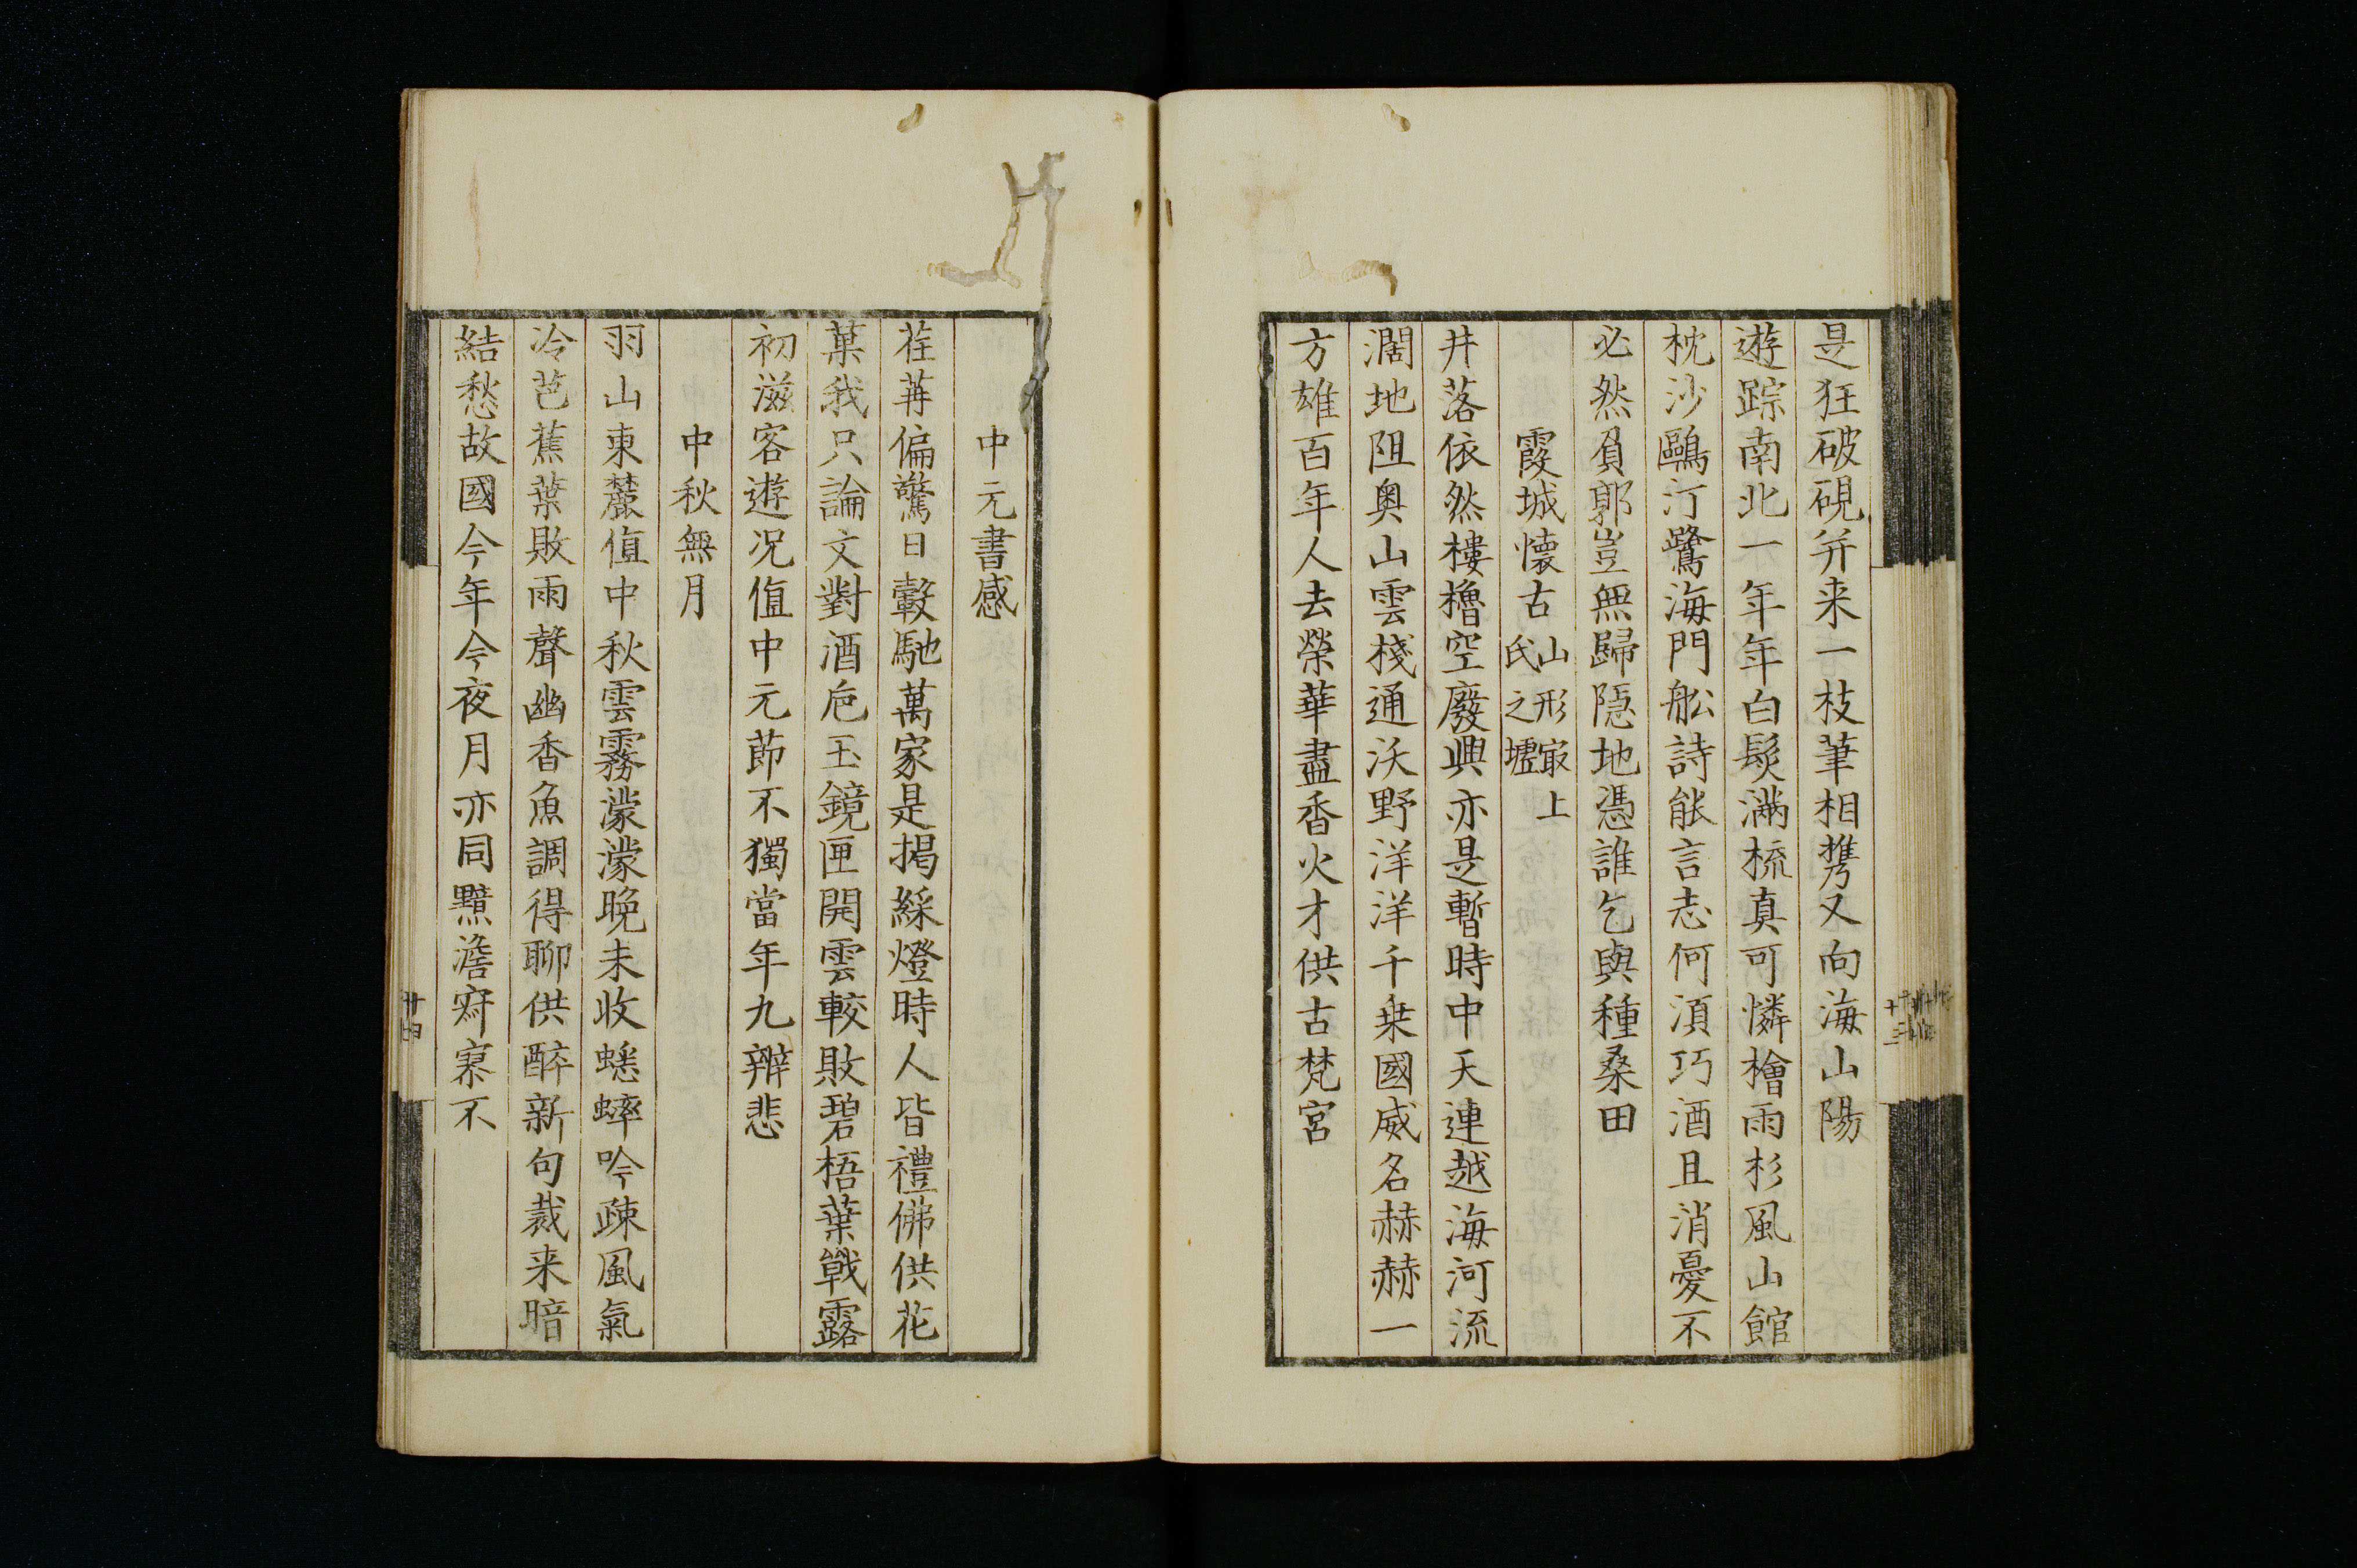 是狂破硯并来一枝筆相携又向海山陽
遊踪南北一年年白髮滿梳真可憐檜雨杉風山館
枕沙鷗汀鷺海門舩詩能言志何須巧酒且消憂不
必然負郭豈無歸隠地憑誰乞與種桑田
霞城懷古山形冣上氏之墟
井落依然樓櫓空廢興亦是暫時中天連越海河流
濶地阻奥山雲棧通沃野洋洋千乗國威名赫赫一
方雄百年人去榮華盡香火才供古梵宮
中元書感
荏苒偏驚日轂馳萬家是掲綵燈時人皆禮佛供花
菓我只論文對酒巵玉鏡匣開雲較敗碧梧葉戰露
初滋客遊况值中元節不獨當年九辨悲
中秋無月
羽山東麓值中秋雲霧濛濛晚未收蟋蟀吟疎風氣
冷芭蕉葉敗雨聲幽香魚調得聊供醉新句裁来暗
結愁故國今年今夜月亦同黯澹窾寡不
廿四